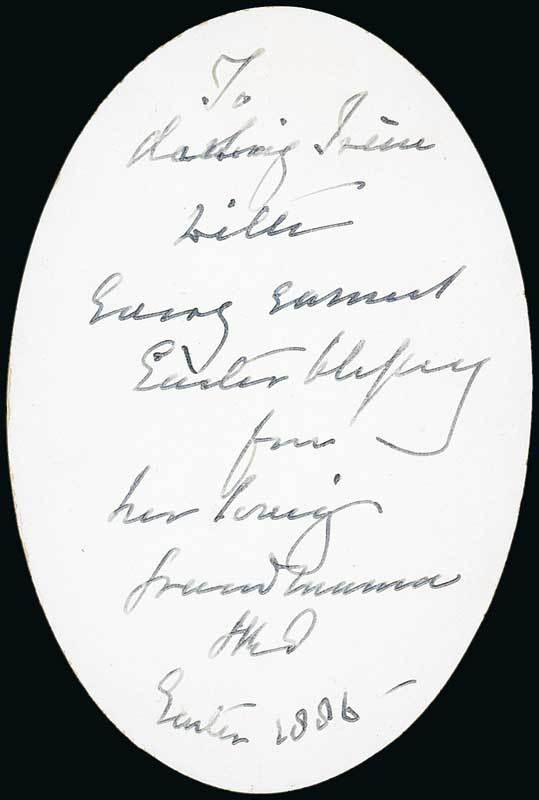 To
darling Irene
with
Every earnest
Easter blessing
from
her loving
Grandmama
Easter 1886